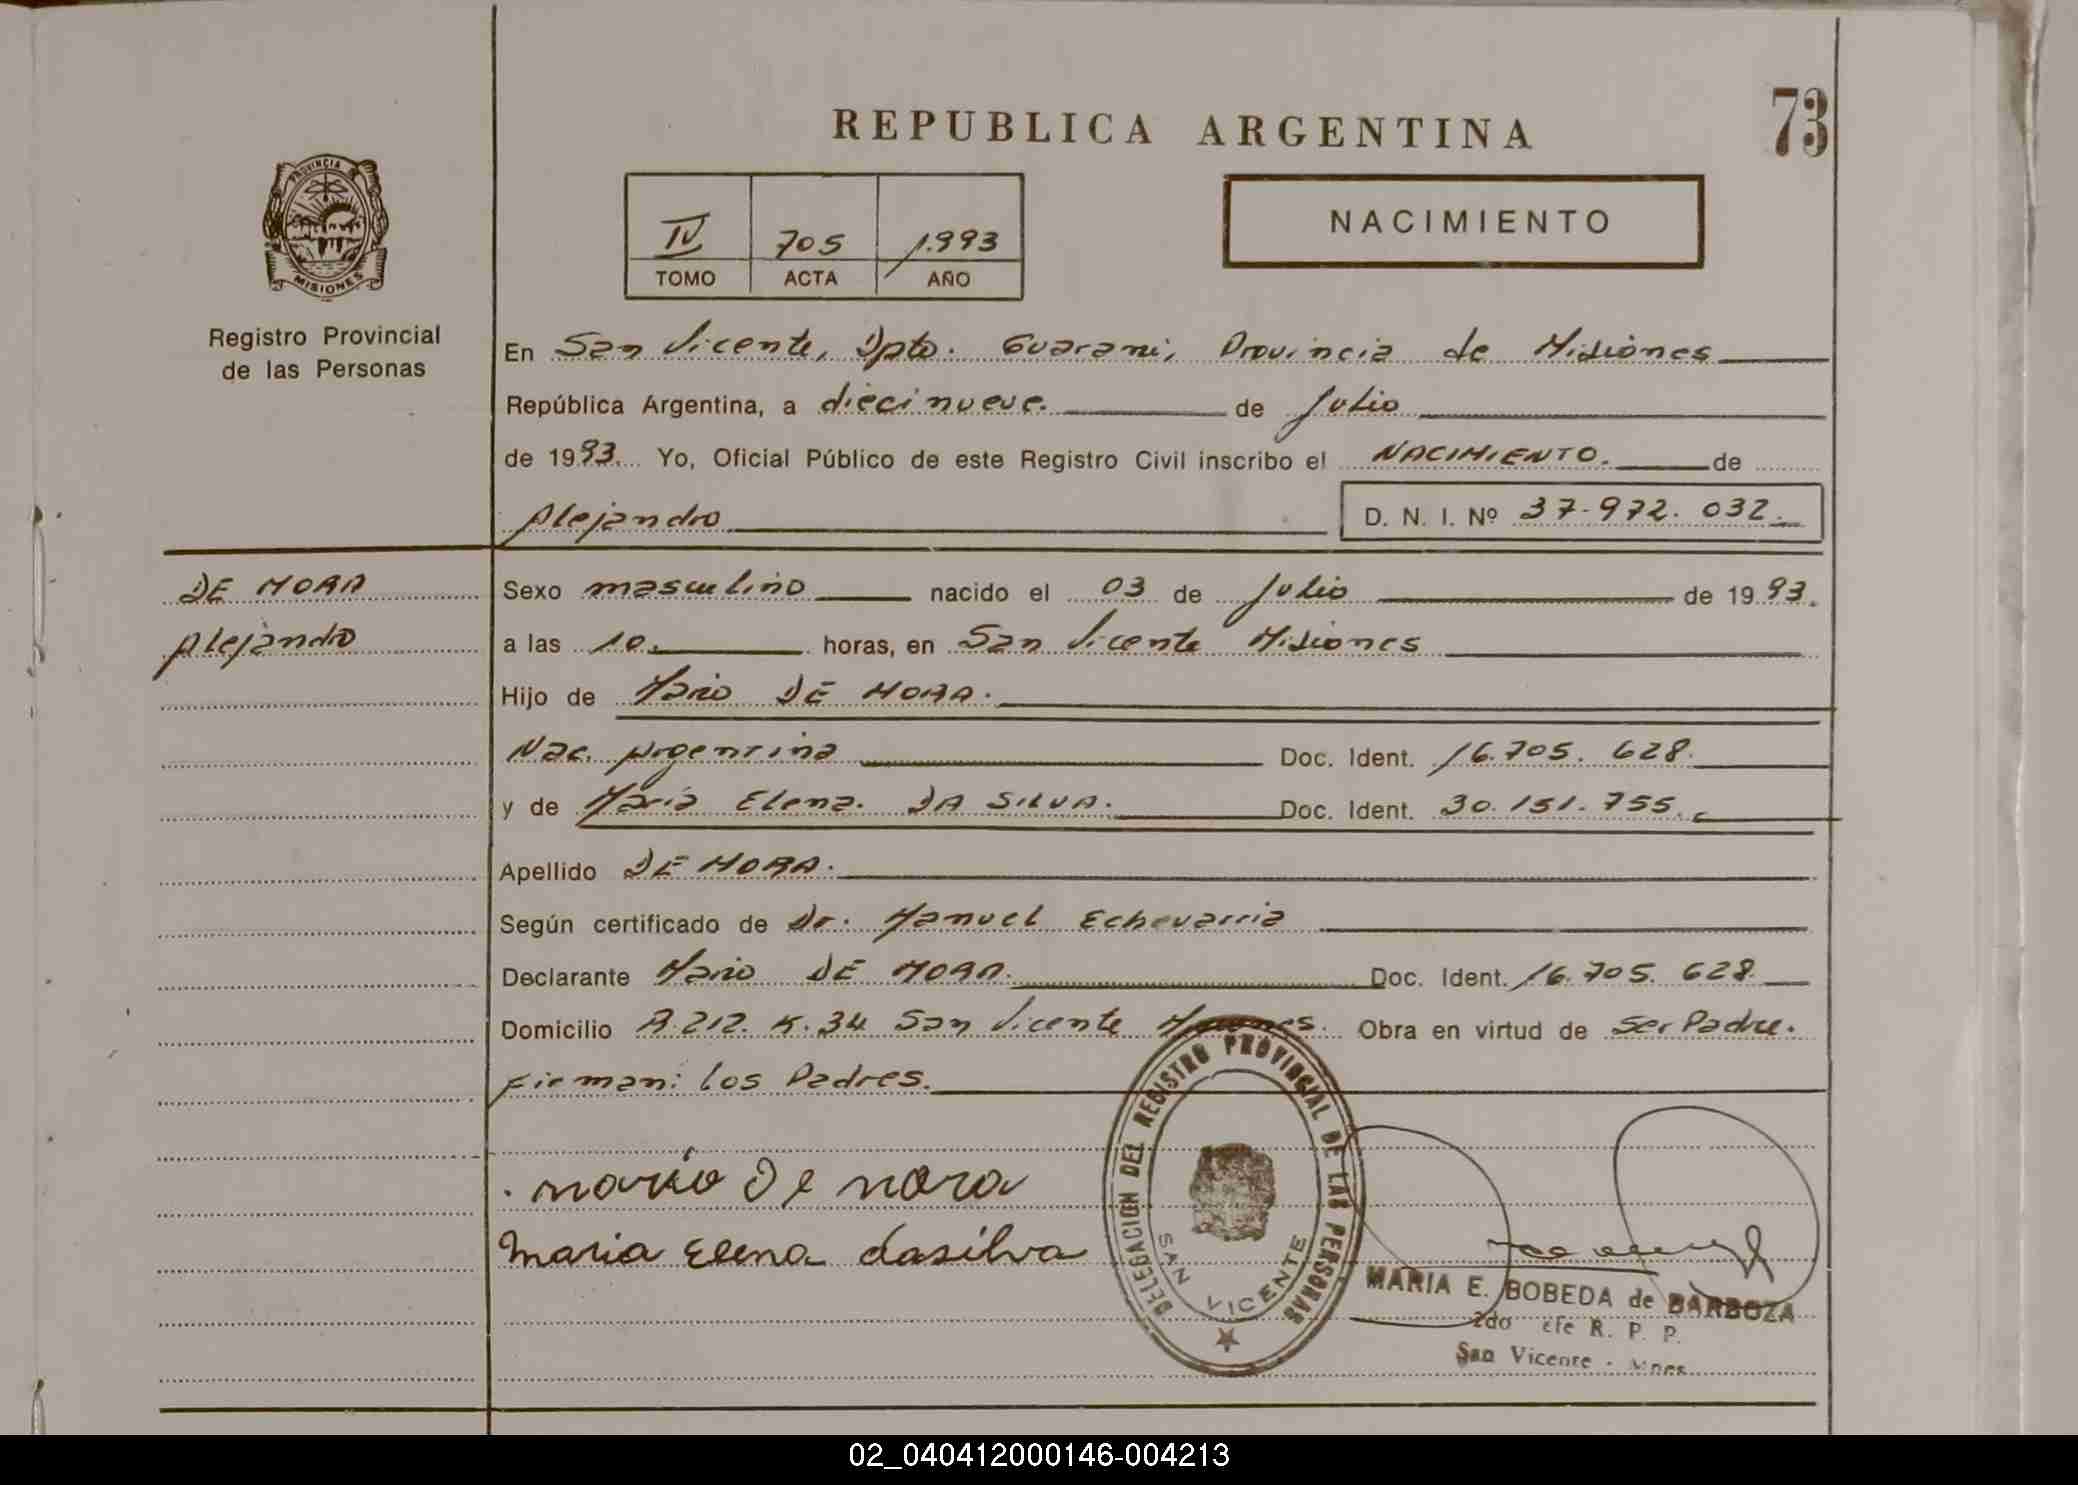 REPUBLICA ARGENTINA
73
PROVINCIA
MISIONES
Registro Provincial
de las Personas
IV 705 1.993
TOMO ACTA AÑO
NACIMIENTO
En San Vicente, Dpto. Guarani, Provincia de Misiones
República Argentina, a diecinueve. de Julio
de 1993. Yo, Oficial Público de este Registro Civil inscribo el NACIMIENTO. de
Alejandro D. N. I. Nº 37.972.032.
DE MORA
Alejandro
Sexo masculino nacido el 03 de Julio de 1993.
a las 10. horas, en San Vicente Misiones
Hijo de Mario DE MORA.
Nac. Argentina Doc. Ident. 16.705.628.
y de María Elena. DA SILVA. Doc. Ident. 30.151.755.
Apellido DE MORA.
Según certificado de Dr. Manuel Echevarria
Declarante Mario DE MORA. Doc. Ident. 16.705.628
Domicilio A.212. K.34 San Vicente Misiones. Obra en virtud de ser Padre.
Firman: los Padres.
mario De mora
Maria Elena dasilva
DELEGACION DEL REGISTRO PROVINCIAL DE LAS PERSONAS
SAN VICENTE
MARIA E. BOBEDA de BARBOZA
2do efe R. P. P.
San Vicente - Mnes
02_040412000146-004213